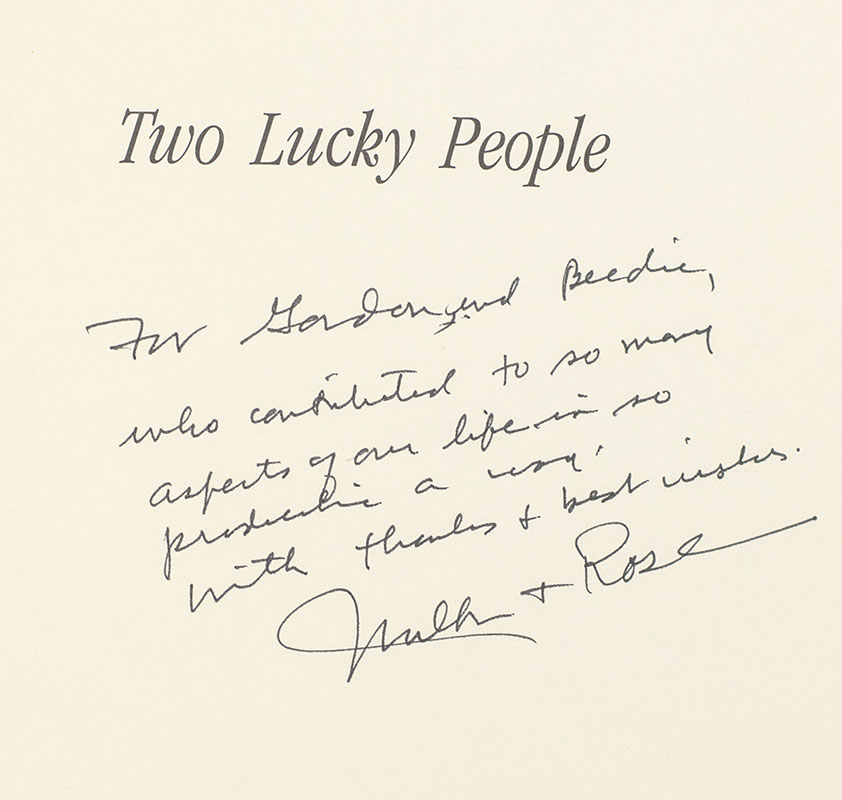 Two Lucky People
For Gordon and Beedie,
who contributed to so many
aspects of our life in so
productive a way.
With thanks + best wishes.
Milton + Rose